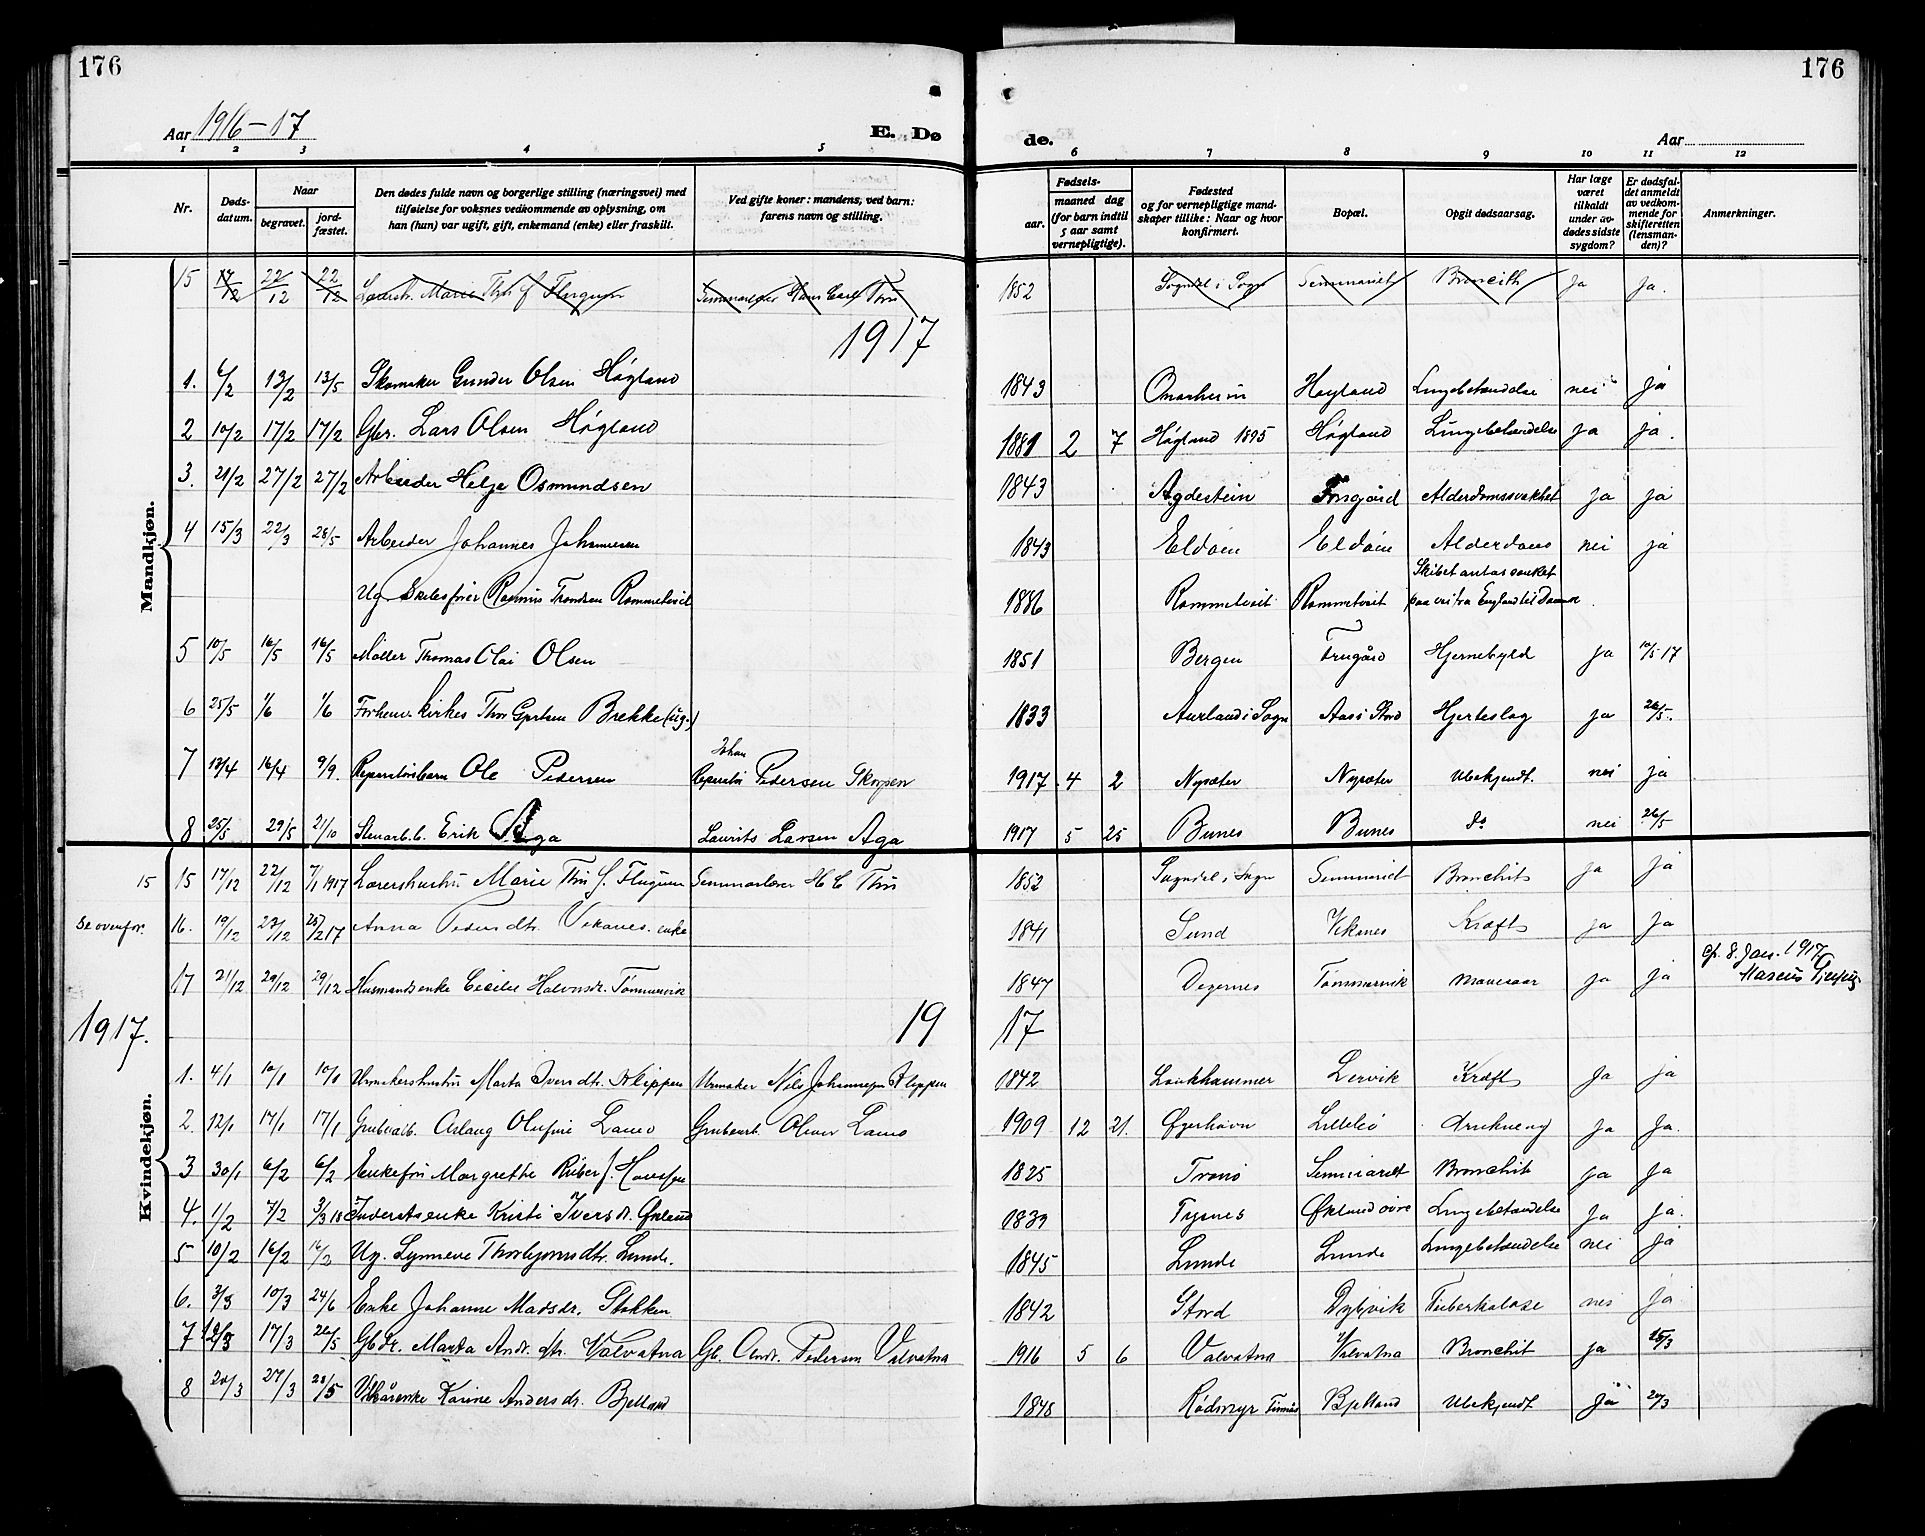 176
176
Aar 1916-17
E. Dø
de.
Aar
1 2 3 4 5 6 7 8 9 10 11 12
Nr.
Døds-
datum.
Naar
begravet.
jord-
fæstet.
Den dødes fulde navn og borgerlige stilling (næringsvei) med
tilføielse for voksnes vedkommende av oplysning, om
han (hun) var ugift, gift, enkemand (enke) eller fraskilt.
Ved gifte koner: mandens, ved barn:
farens navn og stilling.
Fødsels-
aar.
maaned dag
(for barn indtil
5 aar samt
vernepligtige).
Fødested
og for vernepligtige mand-
skaper tillike: Naar og hvor
konfirmert.
Bopæl.
Opgit dødsaarsag.
Har læge
været
tilkaldt
under av-
dødes sidste
sygdom?
Er dødsfal-
det anmeldt
av vedkom-
mende for
skifteretten
(lensman-
den)?
Anmerkninger.
Mandkjøn.
15 17/12 22/12 22/12 Marie Thu f. Flugum Hans Carl Thu 1852 Sogndal i Sogn Seminariet Bronchit Ja Ja.
1917
1. 6/2 13/2 13/5 Skomaker Gunder Olsen Høgland 1843 Onarheim Høyland Lungebetændelse nei ja
2 10/2 17/2 17/2 Gbr. Lars Olsen Høgland 1881 2 7 Høgland 1895 Høgland Lungebetændelse ja ja.
3. 21/2 27/2 27/2 Arbeider Helje Osmundsen 1843 Agdestein Alderdomssvakhet ja ja
4 15/3 22/3 28/5 Arbeider Johannes Johannesen 1843 Eldøen Eldøen Alderdoms nei ja
Ug. Rasmus Trondsen Rommetveit 1886 Rommetveit Rommetveit Skibet antas sunket
paa vei fra England til
5 10/5 16/5 16/5 Møller Thomas Olai Olsen 1851 Bergen Frugård Hjernebyld Ja 10/5 17
6 25/5 1/6 1/6 Forhenv. kirkes. Thor Brekke (ug.) 1833 Aurland i Sogn Aas i Stord Hjerteslag ja 26/5.
7 13/4 16/4 9/9. Ole Pedersen Johan Pedersen Skorpen 1917 4 2 Nysæter Nysæter Ubekjendt. nei ja
8 25/5 29/5 21/10 Stenarb. b. Erik Aga Laurits Larsen Aga 1917 5 25 Bunes Bunes do nei 26/5
Kvindekjøn.
15 15 17/12 22/12 7/1 1917 Lærershustru Marie Thu f. Flugum Seminarlærer H C Thu 1852 Sogndal i Sogn Seminariet Bronchit ja ja
Se ovenfor. 16. 19/12 27/12 25/2 17 Anna Pedersdtr. Vikanes. enke 1841 Sund Vikanes Kræft ja ja
17 21/12 29/12 29/12 Husmandsenke Cecilie Tømmervik 1847 Degernes Tømmervik Mavesaar ja ja cf. 8. Jan. 1917
1917. 1917
1. 4/1 10/1 10/1 Urmakershustru Marta Iversdtr. Klippen Urmaker Nils Johannesen Klippen 1842 Lervik Kræft Ja ja
2. 12/1 17/1 17/1 Aslaug Olufine Grubearb. Oliver 1909 12 21. Drukning Ja Ja.
3 30/1 6/2 6/2 Enkefru Margrethe Riber f. 1825 Seminariet Bronchit ja ja
4. 1/2 7/2 3/3 18 Inderstsenke Kristi Iversdr. Økland 1839 Tysnes Økland øvre Lungebetændelse Ja ja.
5 10/2 16/2 16/2 Ug. Synneve Thorbjørnsdtr. Lunde. 1845 Lunde Lunde Lungebetændelse nei ja
6. 3/3 10/3 24/6 Enke Johanne Madsdr. Stokken 1842 Stord Dybvik Tuberkulose nei ja
7 12/3 17/3 26/5 Gbdr. Marta Andr. dtr. Valvatna Gb. Andr. Pedersen Valvatna 1916 5 6 Valvatna Valvatna Bronchit ja 15/3
8 20/3 27/3 28/5 Vilkårsenke Karine Andersdr. Bjelland 1848 Rødmyr Bjelland Ubekjendt Ja 20/3